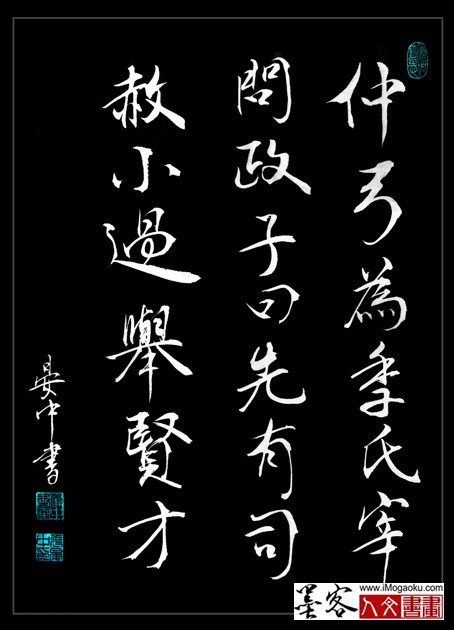 仲弓為季氏宰
問政子曰先有司
赦小過舉賢才
晏中書
www.iMogaoku.com
墨客
人文書畫